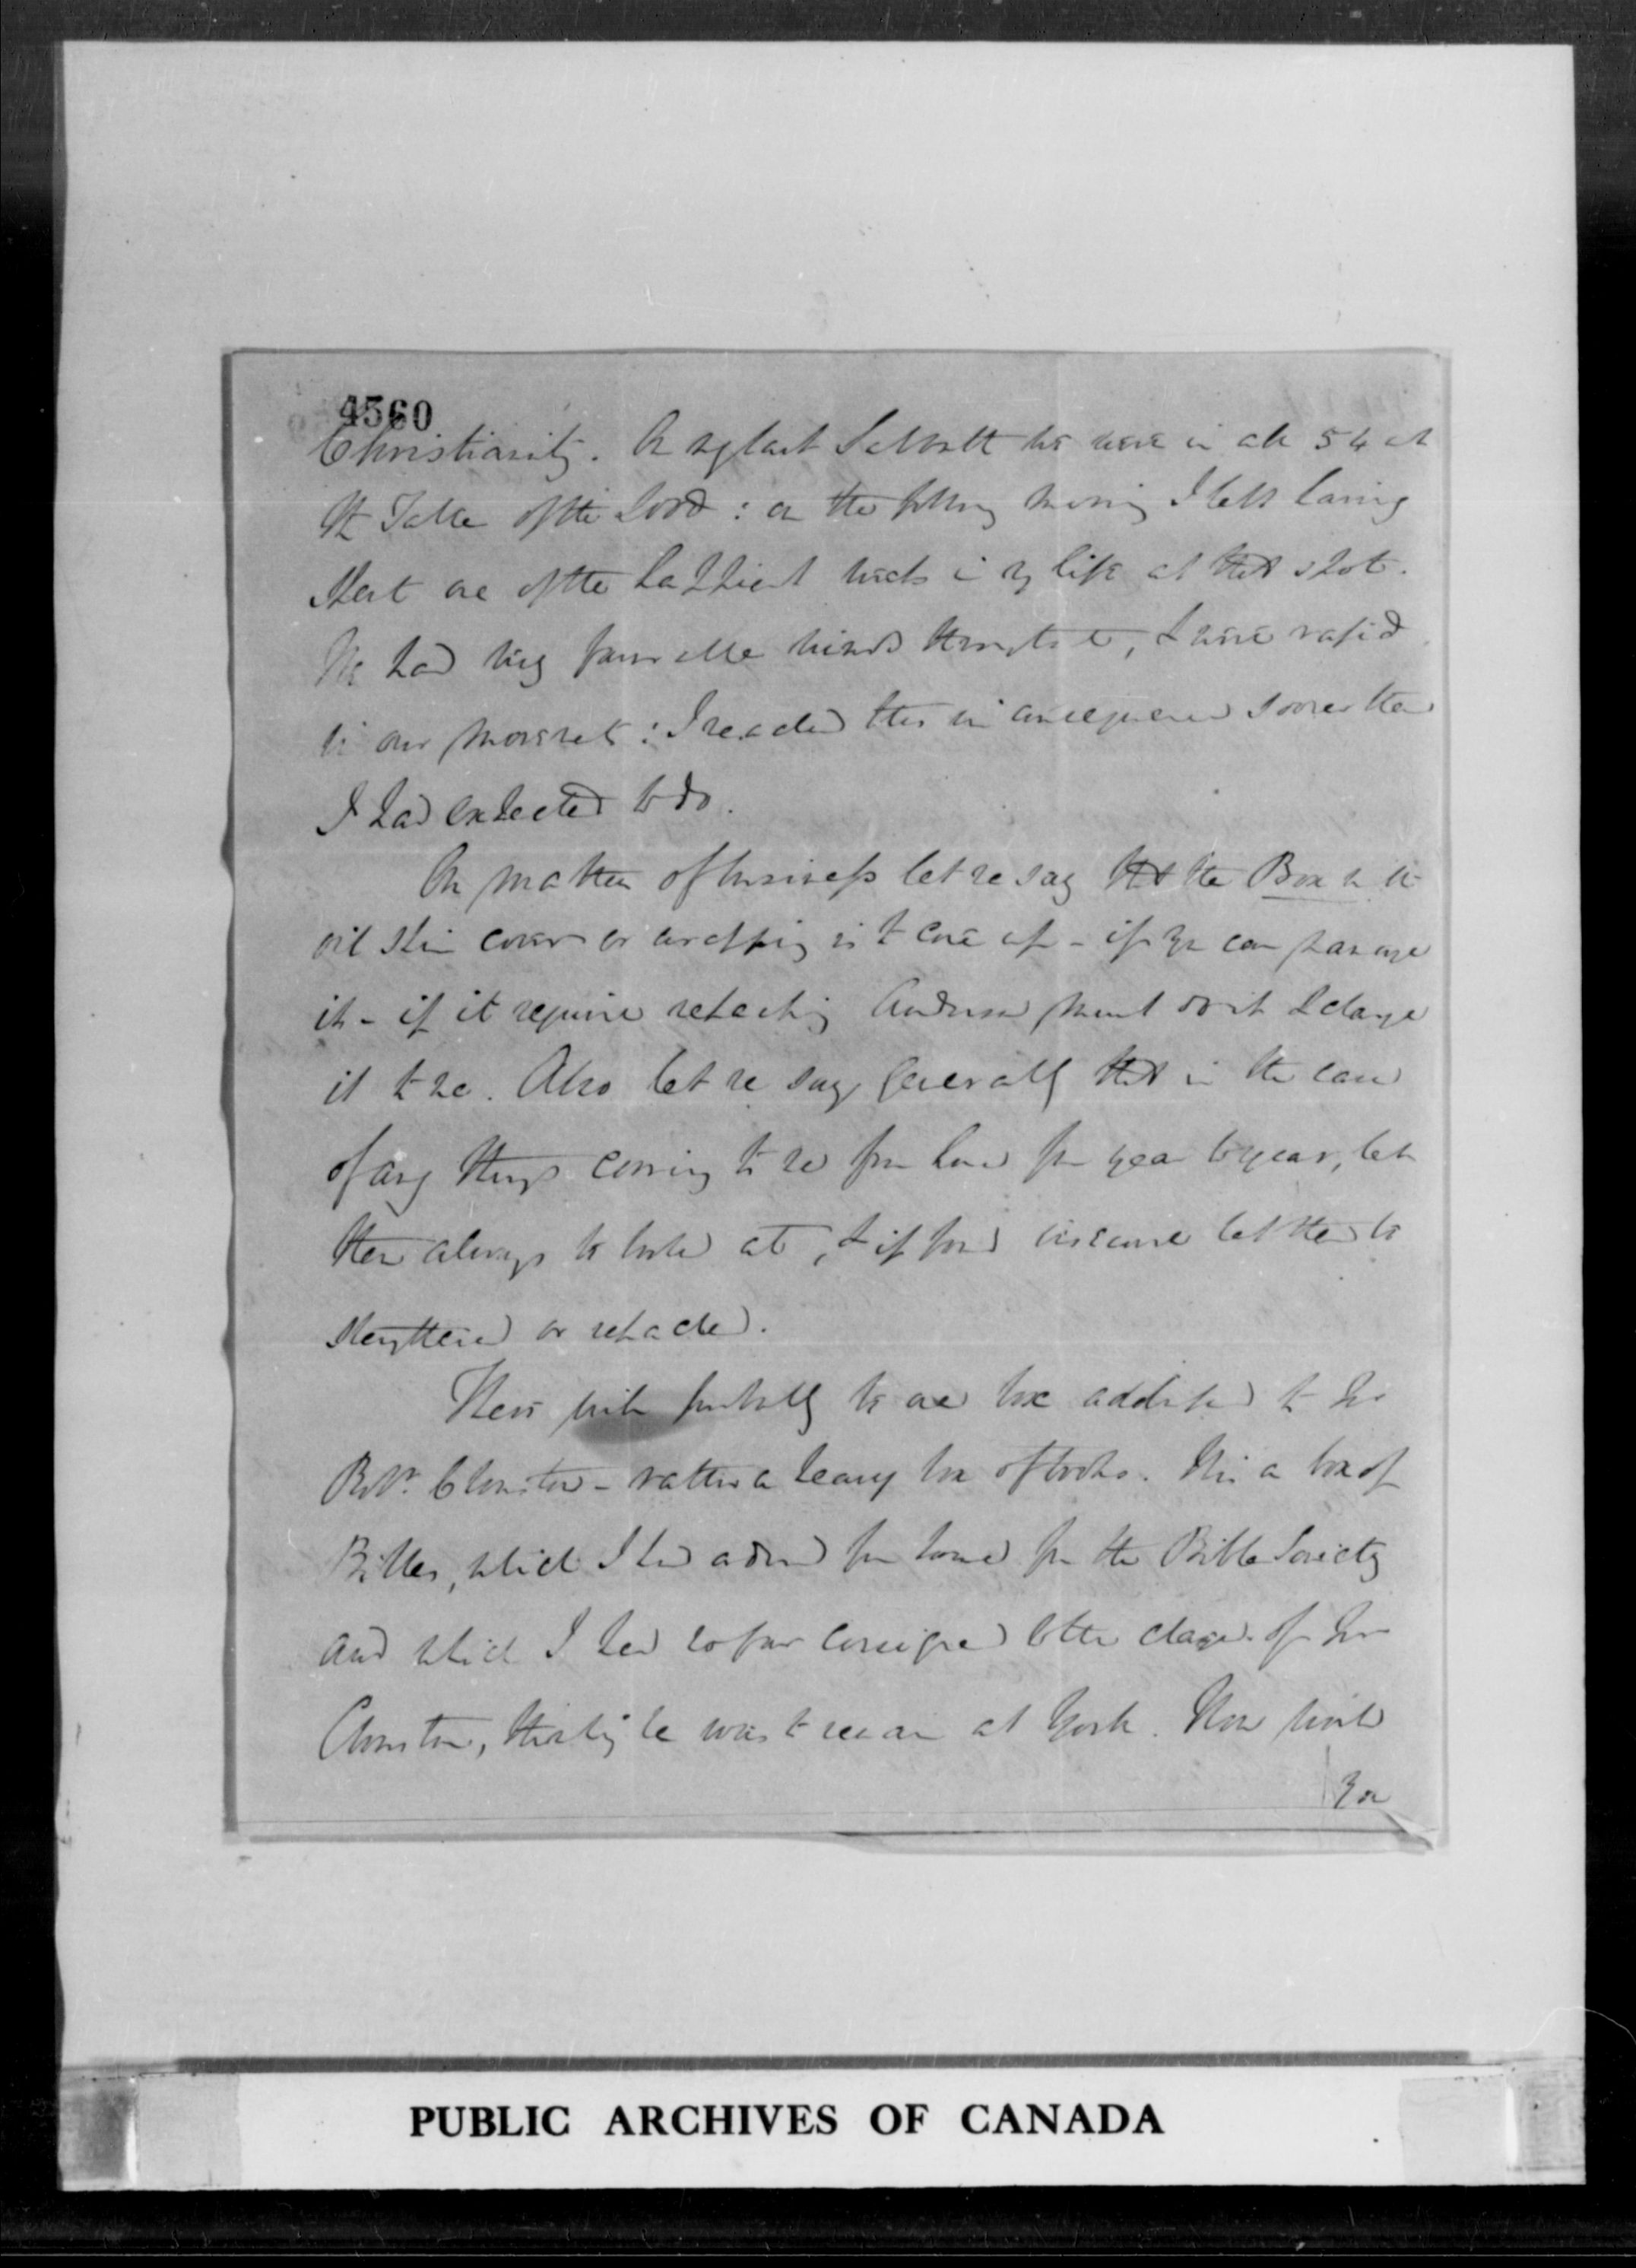 4560
Christianity. On my last Sabbath we were in all 54 at
the Table of the Lord: on the following morning I left having
spent one of the happiest weeks in my life at that spot.
We had very favourable winds throughout, & were rapid
in our movements: I reached this in consequence sooner than
I had expected to do.
On matters of business let me say that the Box in the
oil skin cover or wrapping is to come up - if you can manage
it - if it require repacking Anderson must do it & charge
it to me. Also let me say generally that in the case
of any things coming to me from home from year to year, let
them always be looked at, & if found insecure let them be
strengthened or repacked.
There will probably be one box addressed to Mr
Robt. Clouston - rather a heavy box of books. It is a box of
Bibles, which I had ordered from home from the Bible Society
and which I had so far consigned to the charge of Mr
Clouston, thinking he was to remain at York. Now will
you
PUBLIC ARCHIVES OF CANADA